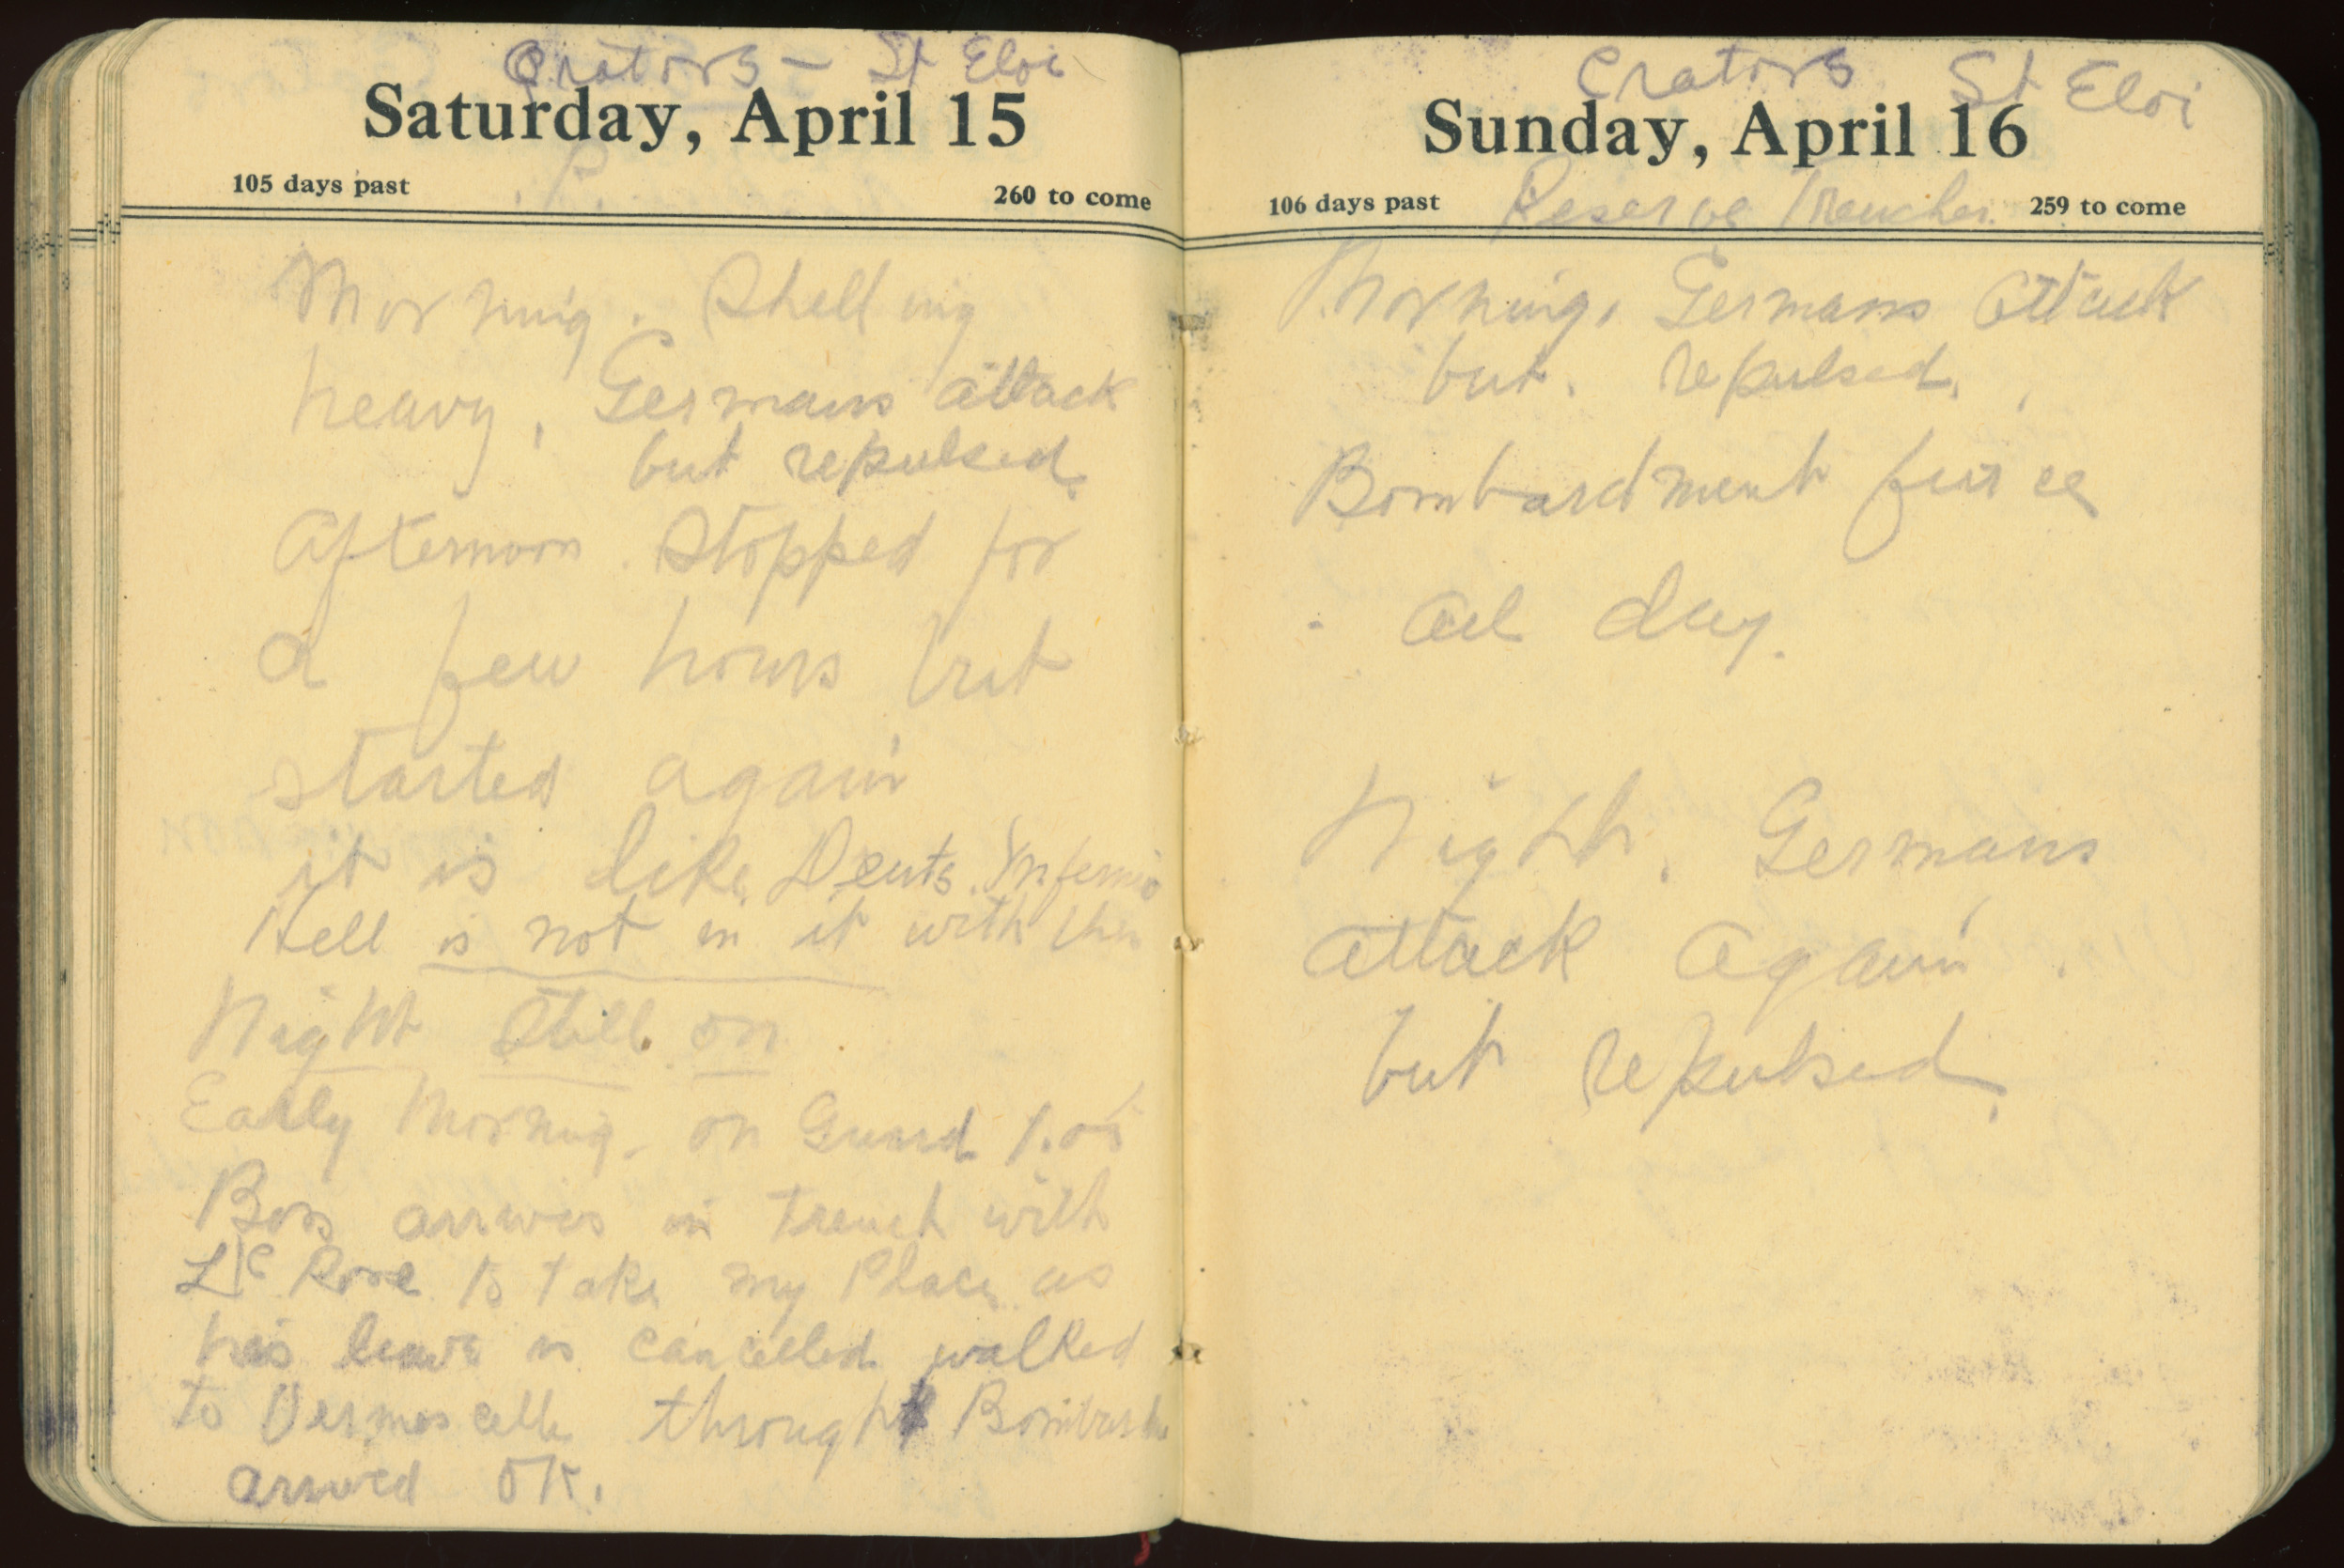 Crators - St Eloi
Saturday, April 15
105 days past 260 to come
Morning. Shelling
heavy, Germans attack
but repulsed.
Afternoon Stopped for
a few hours but
started again
it is like Dents Inferno
Hell is not in it with this
Night Still on
Early Morning. on Guard 1.05
Boss arrives in trench with
L/C Rose to take my Place as
his leave is cancelled walked
to through Bombard
arrived OK.
Crators St Eloi
Sunday, April 16
106 days past Reserve Trenches. 259 to come
Morning, Germans attack
but. repulsed.
Bombardment fierce
all day.
Night. Germans
attack again.
but repulsed.